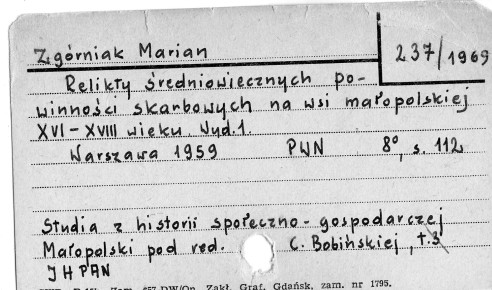 Zgórniak Marian
237/1969
Relikty średniowiecznych po-
winności skarbowych na wsi małopolskiej
XVI-XVIII wieku. Wyd.1.
Warszawa 1959 PWN 8°, s. 112
Studia z historii społeczno-gospodarczej
Małopolski pod red. C. Bobińskiej, t.3
IH PAN
Zam. 657 DW/Op. Zakł. Graf. Gdańsk, zam. nr 1795.